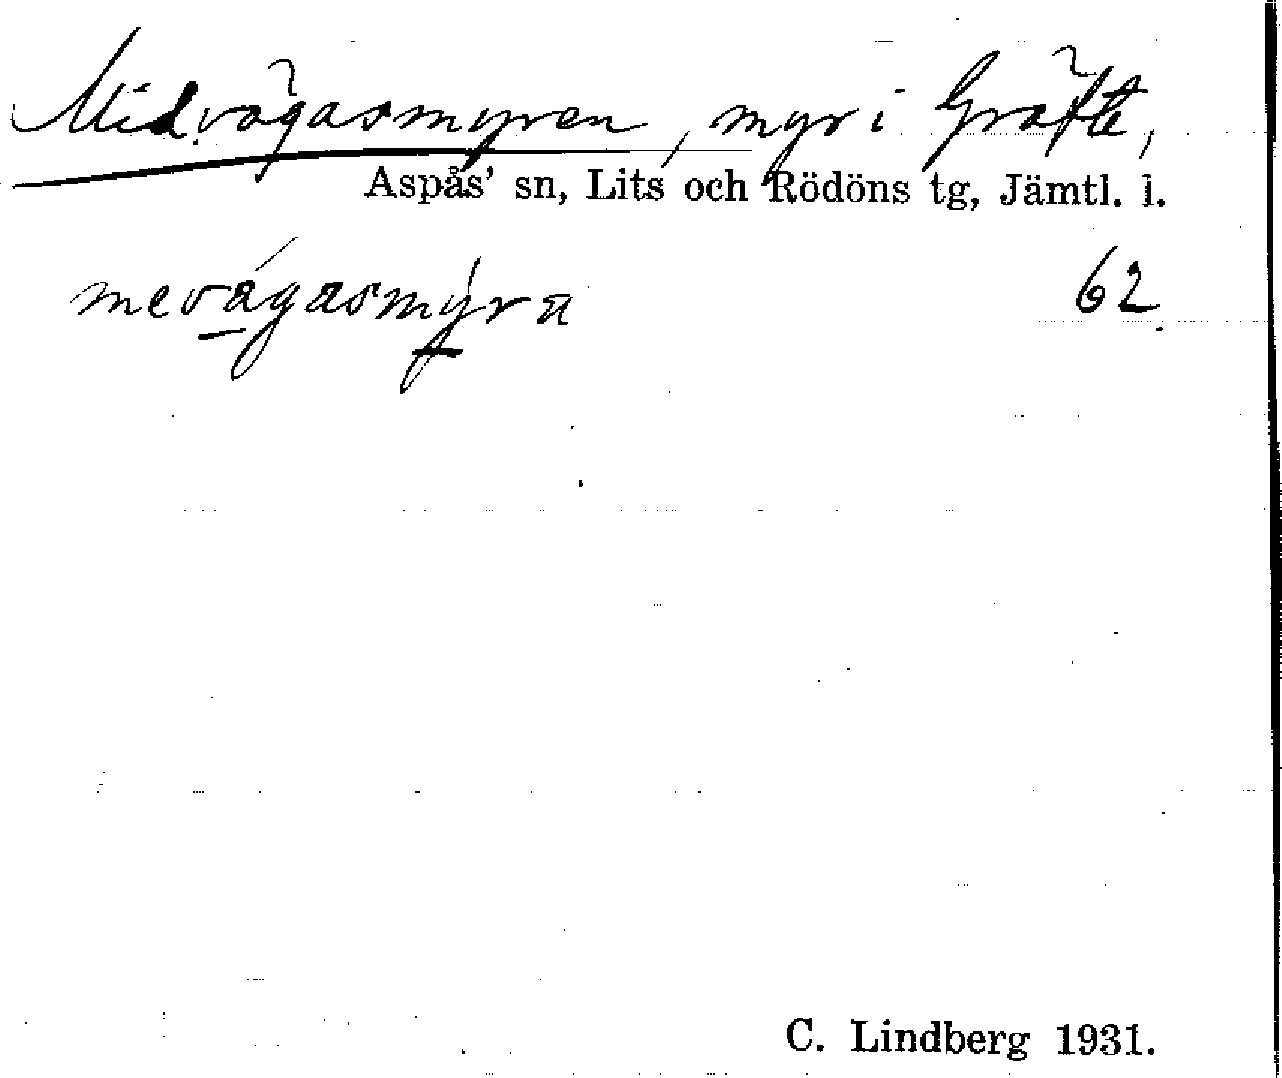 Midvägasmyren, myr i Gräfte,
Aspås' sn, Lits och Rödöns tg, Jämtl. l.
mevágasmýra 62
C. Lindberg 1931.